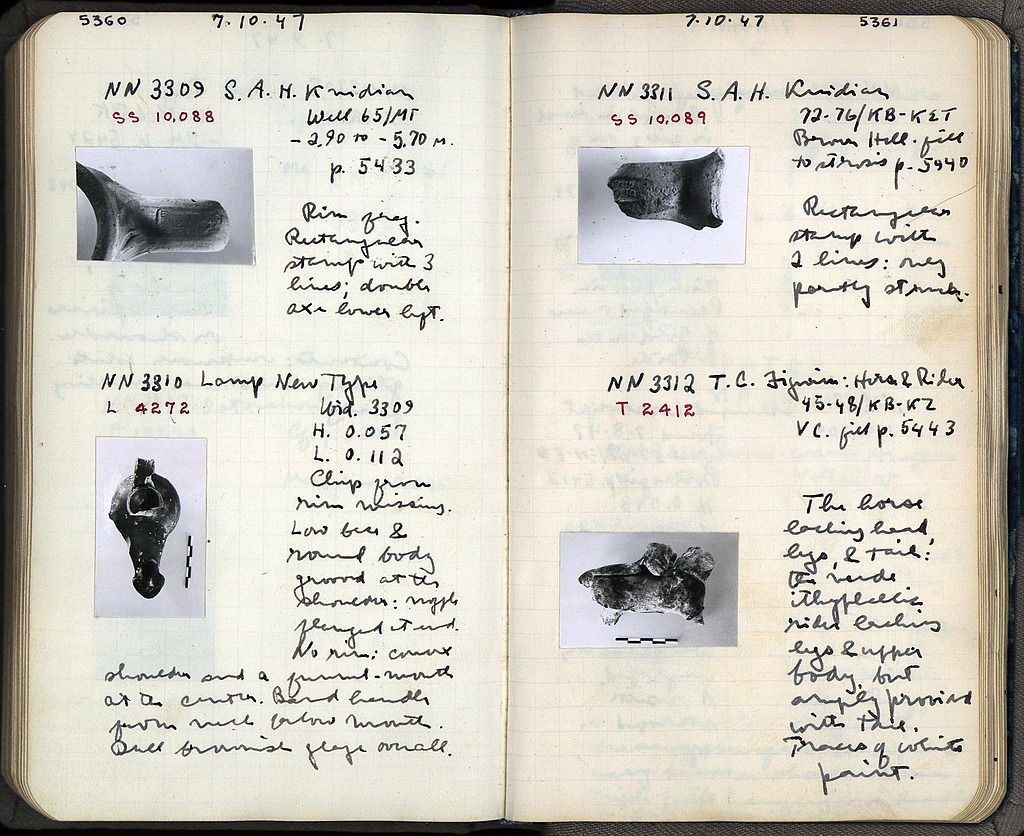 5360
7.10.47
NN 3309 S.A.H. Knidian
SS 10,088
Well 65/MT
-2.90 to -5.70 M.
p. 5433
Rim frag.
Rectangular
stamp with 3
lines; double
axe lower left.
NN 3310 Lamp New Type
L 4272
Wid. 3309
H. 0.057
L. 0.112
Chip from
rim missing.
Low base &
round body
grooved at the
shoulder: nozzle
flanged at end.
No rim; convex
shoulder and a funnel-mouth
at the center. Band handle
from neck below mouth.
Dull brownish glaze overall.
7.10.47
5361
NN 3311 S.A.H. Knidian
SS 10,089
72-76/KB-KET
Brown Hell. fill
to sterosis p. 5440
Rectangular
stamp with
2 lines: only
partly struck.
NN 3312 T.C. Figurine: Horse & Rider
T 2412
45-48/KB-KZ
VC. fill p. 5443
The horse
lacking head,
legs, & tail:
the nude
ithyphallic
rider lacking
legs & upper
body, but
amply provided
with tail.
Traces of white
paint.